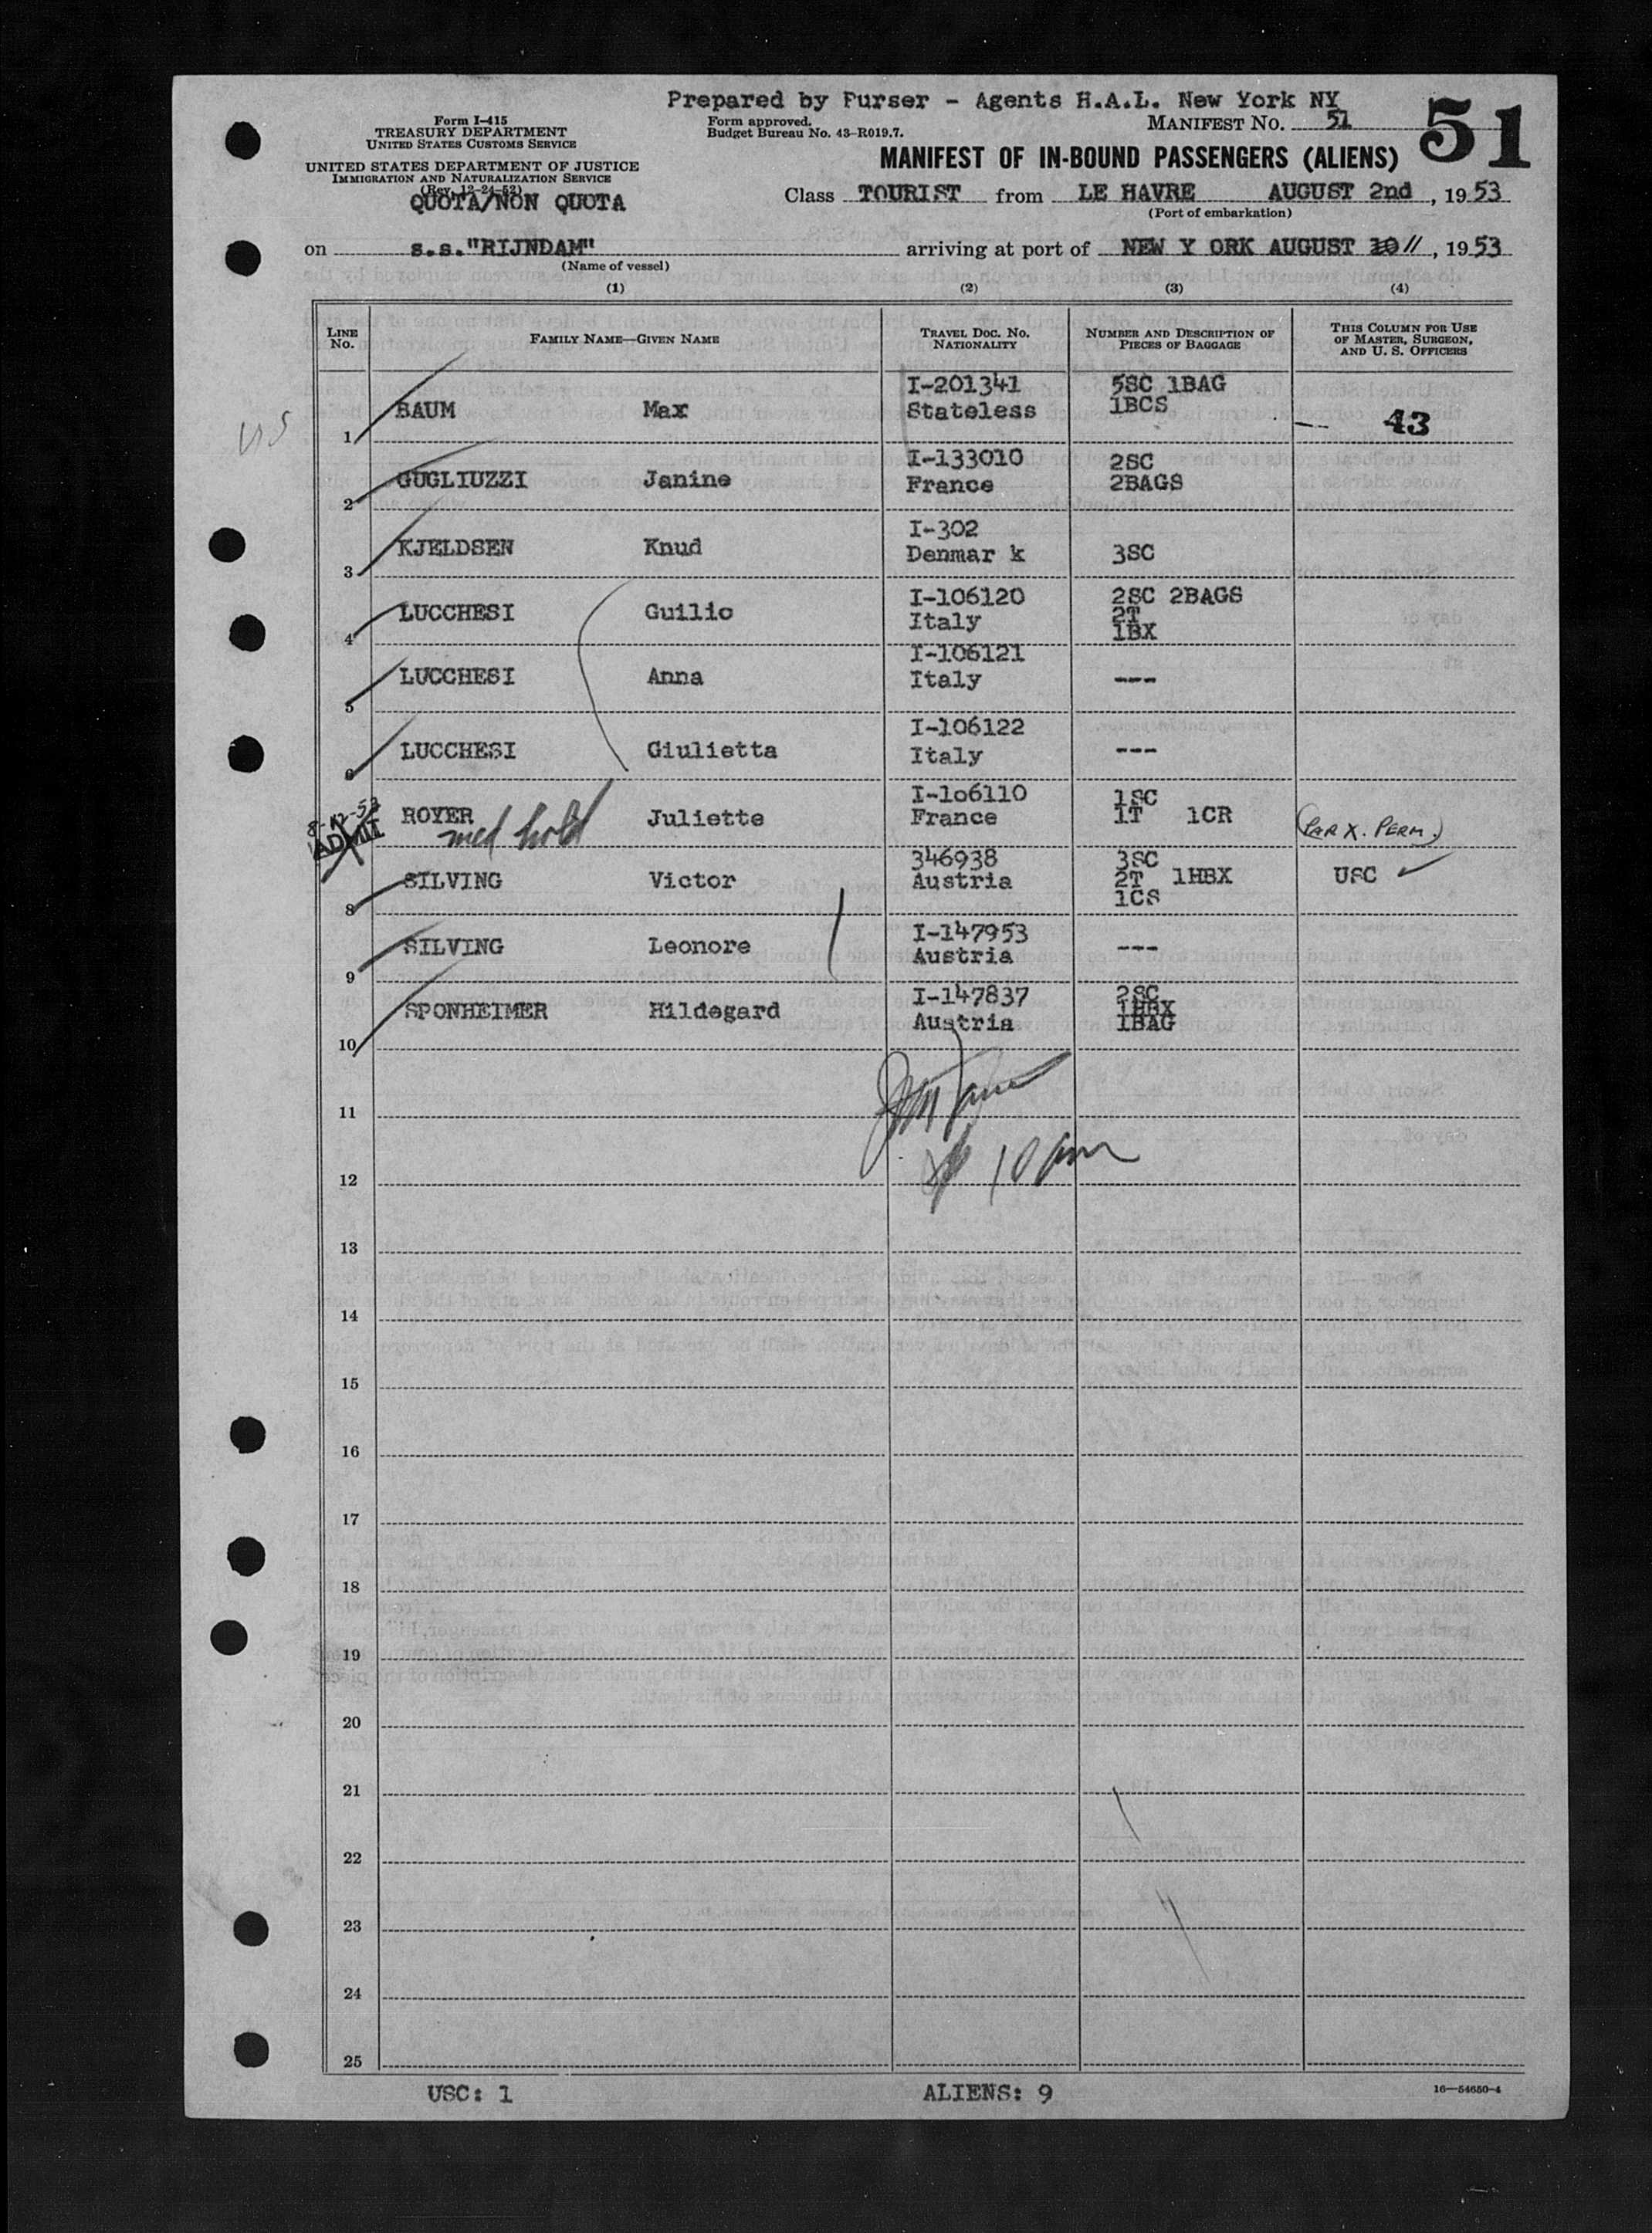 Prepared by Purser - Agents H.A.L. New York NY
Form I-415
TREASURY DEPARTMENT
UNITED STATES CUSTOMS SERVICE
UNITED STATES DEPARTMENT OF JUSTICE
IMMIGRATION AND NATURALIZATION SERVICE
(Rev. 12-24-52)
QUOTA/NON QUOTA
Form approved.
Budget Bureau No. 43-R019.7.
MANIFEST NO. 51
51
MANIFEST OF IN-BOUND PASSENGERS (ALIENS)
Class TOURIST from LE HAVRE AUGUST 2nd, 1953
(Port of embarkation)
on s.s."RIJNDAM" arriving at port of NEW Y ORK AUGUST 10 11, 1953
(Name of vessel)
(1) (2) (3) (4)
LINE NO.
FAMILY NAME—GIVEN NAME
TRAVEL DOC. NO. NATIONALITY
NUMBER AND DESCRIPTION OF PIECES OF BAGGAGE
THIS COLUMN FOR USE OF MASTER, SURGEON, AND U. S. OFFICERS
I-201341 5SC 1BAG
1 BAUM Max Stateless 1BCS 43
I-133010 2SC
2 GUGLIUZZI Janine France 2BAGS
I-302
3 KJELDSEN Knud Denmar k 3SC
I-106120 2SC 2BAGS
4 LUCCHESI Guilio Italy 2T
1BX
I-106121
5 LUCCHESI Anna Italy ---
I-106122
6 LUCCHESI Giulietta Italy ---
8-12-53
ADMIT
I-1o6110 1SC
ROYER med hold Juliette France 1T 1CR (PAR X. PERM.)
346938 3SC
8 SILVING Victor Austria 2T 1HBX USC
1CS
I-147953
9 SILVING Leonore Austria ---
I-147837 2SC
10 SPONHEIMER Hildegard Austria 1HBX
1BAG
11
12
10 am
13
14
15
16
17
18
19
20
21
22
23
24
25
USC: 1 ALIENS: 9
16—54650-4